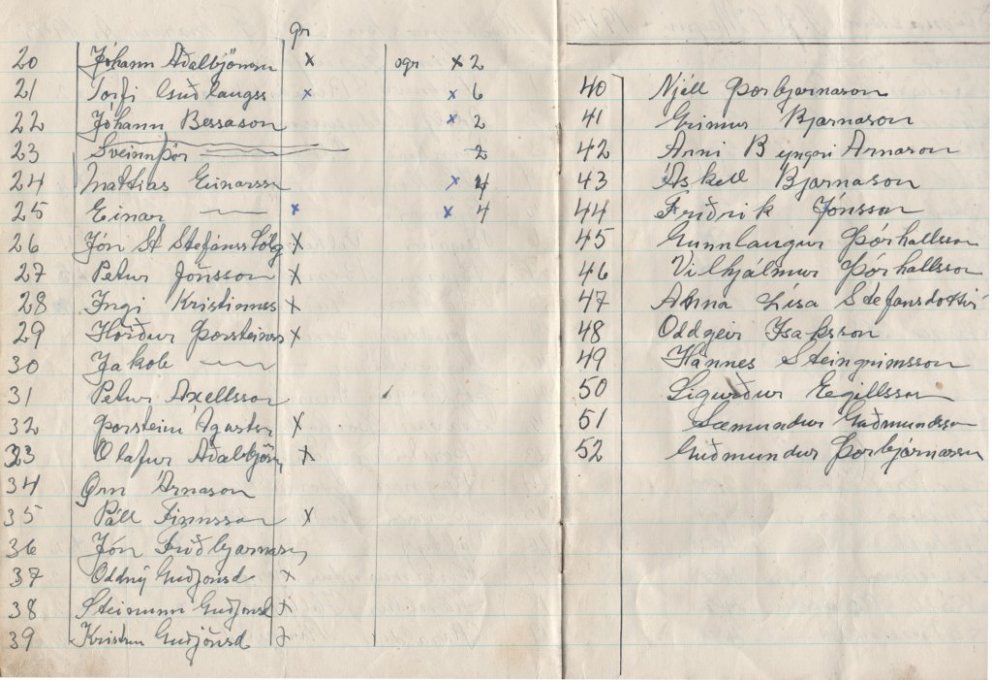 gr
20 Jóhann Aðalbjörnsson x ogr x 2
21 Torfi Guðlaugss x x 6
22 Jóhann Bessason x 2
23 Sveinnþór 2
24 Mattias Einarsson x 4
25 Einar —— x x 4
26 Jón St Stefánss x
27 Petur Jónsson x
28 Ingi Kristinnss x
29 Hörður Þorsteinss x
30 Jakob ——
31 Petur Axellsson
32 Þorsteinn Agustss x
33 Olafur Aðalbjörn x
34 Örn Árnason
35 Páll Finnsson x
36 Jón Friðbjarnarson
37 Oddný Guðjónsd x
38 Steinunn Guðjónsd x
39 Kristun Guðjónsd
40 Njáll Þorbjarnason
41 Grimur Bjarnason
42 Arni B Arnason
43 Áskell Bjarnason
44 Friðrik Jónsson
45 Gunnlaugur Þórhallsson
46 Vilhjálmur Þórhallsson
47 Anna Lísa Stefansdottir
48 Oddgeir Isaksson
49 Hannes Steingrimsson
50 Sigurður Egillsson
51 Sæmundur Guðmundsson
52 Guðmundur Þorbjarnarson